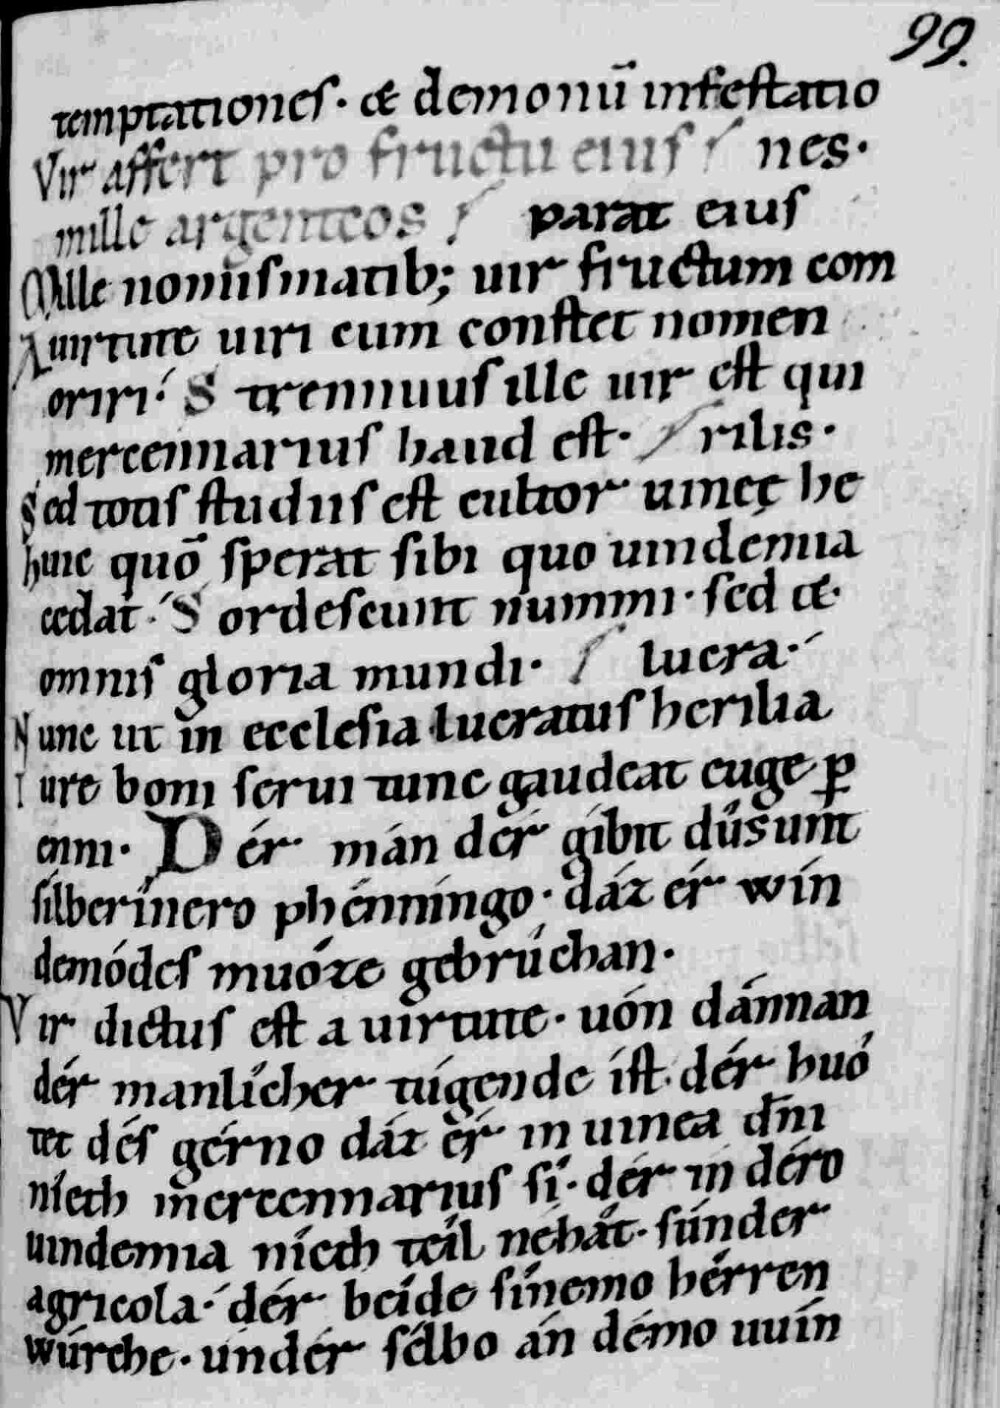 99.
temptationes. & demonū infestatio
Vir affert pro fructu eius / nes.
mille argenteos / parat eius
Mille nomismatib; uir fructum com
A uirtute uiri cum constet nomen
oriri. Strennuus ille uir est qui
mercennarius haud est. / rilis.
Sed totus studiis est cultor uineę he
huic quō sperat sibi quo uindemia
cedat. Sordescunt nummi. sed &
omnis gloria mundi. / lucra.
Nunc ut in ecclesia lucratus herilia
Iure boni serui tunc gaudeat euge ꝑ
enni. Dér mán dér gíbit dûsunt
sílberînero phénningo. dáz ér wín
demódes muóze gebrûchan.
Vir dictus est a uirtute. uón dánnan
dér manlîcher túgende íst. dér huó
tet dés gérno dáz ér in uinea dn̄i
níeth mercennarius sî. dér in déro
uindemia níeth teíl nehât. súnder
agricola. dér beíde sînemo hérren
wúrche. únd ér sélbo án démo uuîn